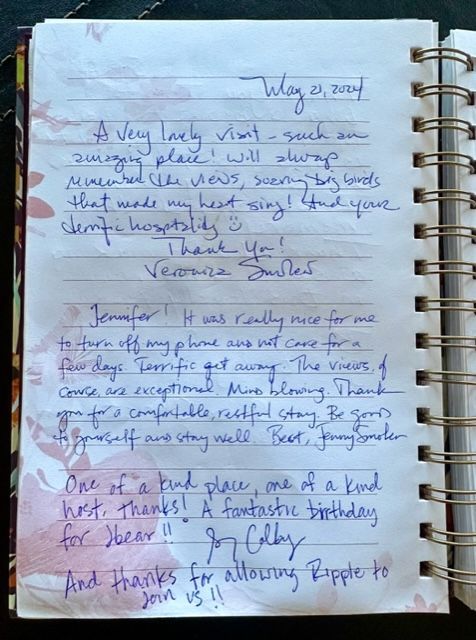 May 21, 2024
A very lovely visit – such an
amazing place! Will always
remember the views, soaring big birds
that made my heart sing! And your
terrific hospitality ☺
Thank you!
Veronica Smoler
Jennifer! It was really nice for me
to turn off my phone and not care for a
few days. Terrific get away. The views, of
course, are exceptional. Mind blowing. Thank
you for a comfortable, restful stay. Be good
to yourself and stay well. Best, Jenny Smoler
One of a kind place, one of a kind
host, thanks! A fantastic birthday
for Jbear!! Colby
And thanks for allowing Ripple to
join us!!